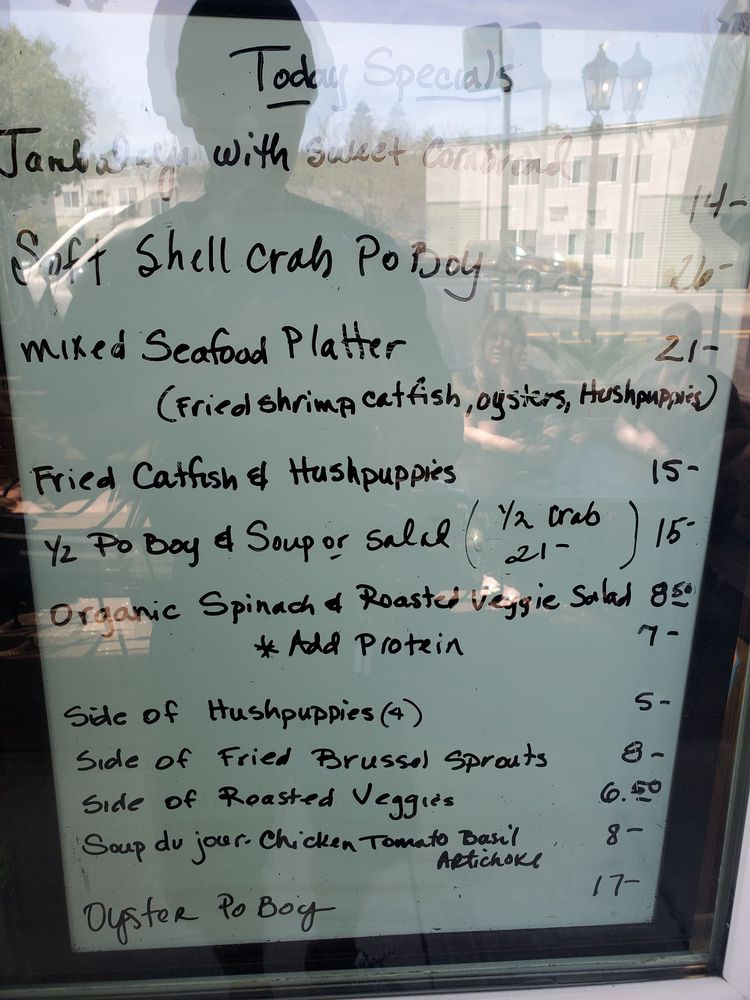 Today Specials
Jambalaya with Sweet Cornbread
14-
Soft Shell Crab Po Boy 26-
Mixed Seafood Platter 21-
(Fried shrimp, catfish, oysters, Hushpuppies)
Fried Catfish & Hushpuppies 15-
1/2 Po Boy & Soup or Salad (1/2 Crab 21-) 15-
Organic Spinach & Roasted Veggie Salad 8.50
* Add Protein 7-
Side of Hushpuppies (4) 5-
Side of Fried Brussel Sprouts 8-
Side of Roasted Veggies 6.50
Soup du jour- Chicken Tomato Basil 8-
Artichoke
17-
Oyster Po Boy